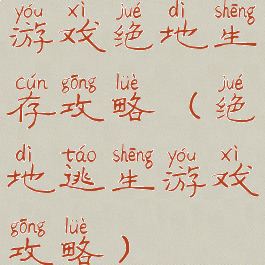 yóu xì jué dì shēng
游戏绝地生
cún gōng lüè jué
存攻略（绝
dì táo shēng yóu xì
地逃生游戏
gōng lüè
攻略）